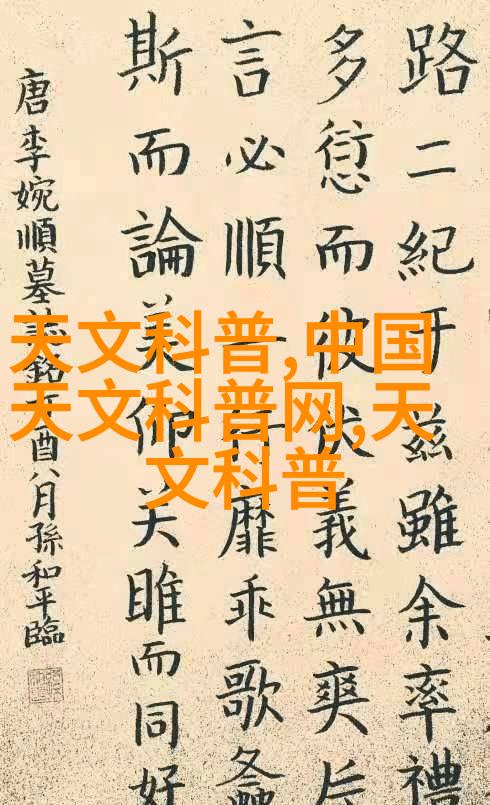 路二紀于兹雖余率禮
多愆而彼伏義無爽
言必順一行靡乖歌
斯而論美仰关雎而同好
唐李婉順墓誌銘丁酉八月孫和平臨
天文科普,中国
天文科普网,天
文科普